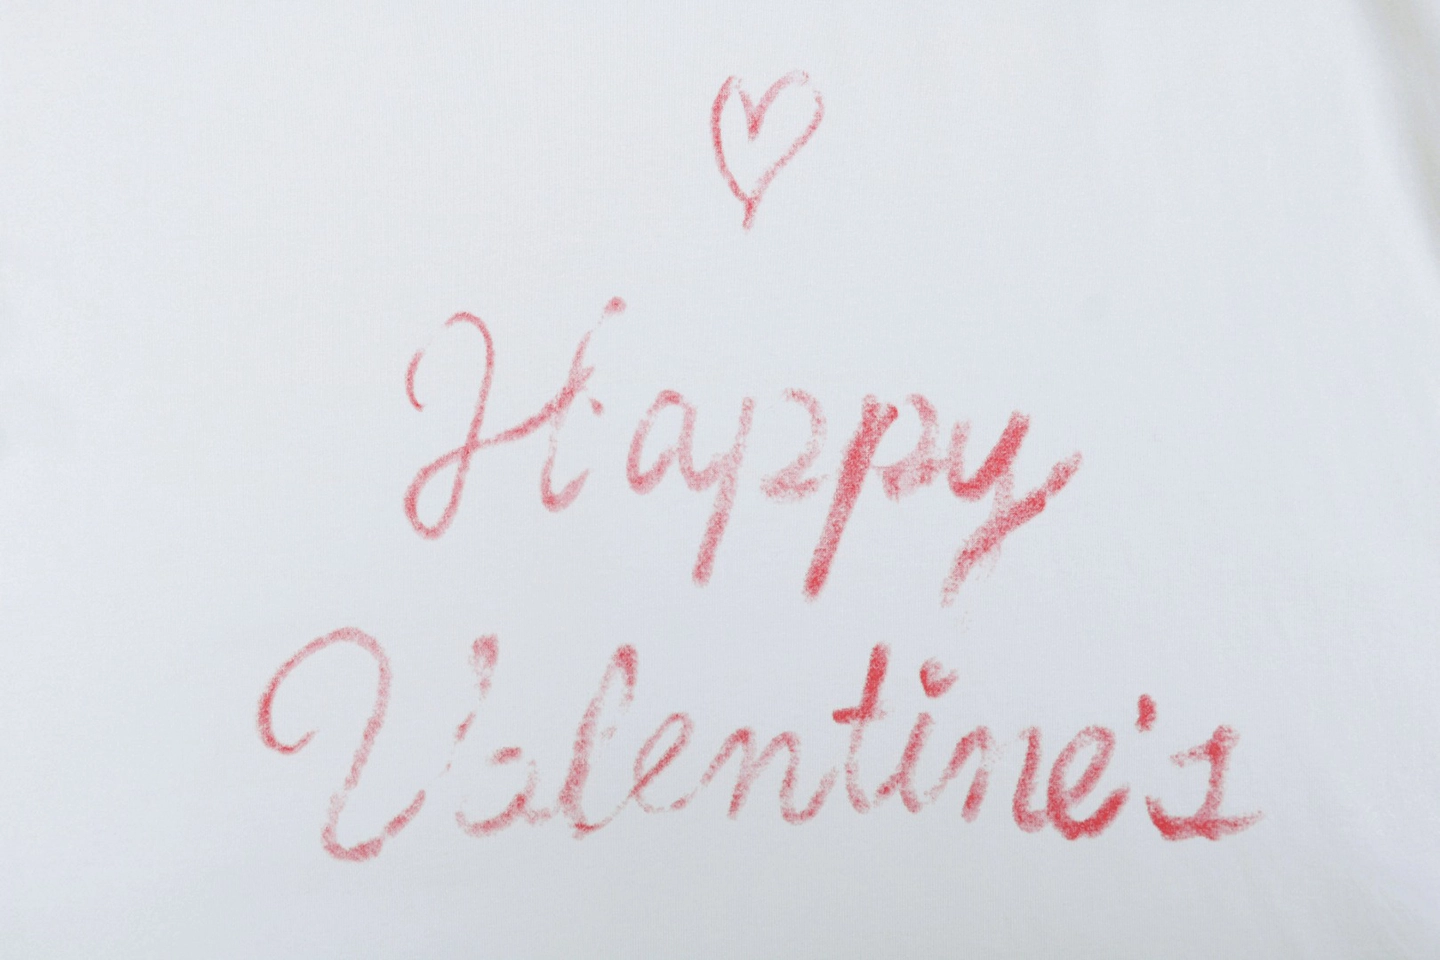 Happy
Valentine's